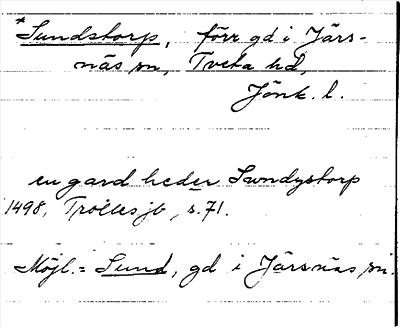 *Sundstorp, förr gd i Järs-
näs sn, Tveta hd,
Jönk. l.
en gard heder Swndystorp
1498, Trolles jb, s. 71.
Möjl. = Sund, gd i Järsnäs sn.